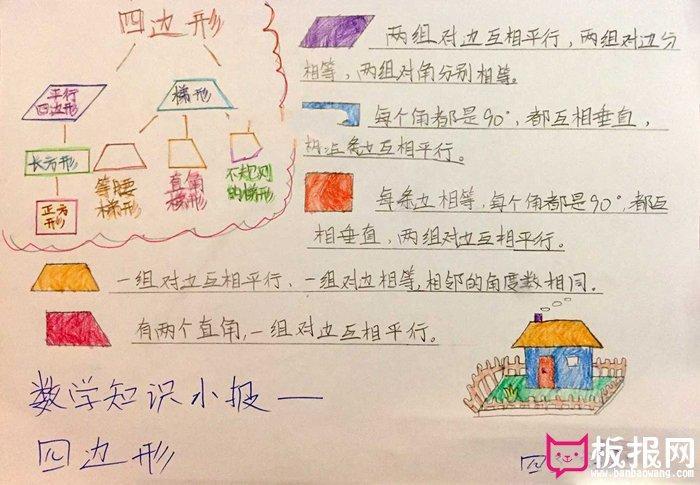 四边形
平行
四边形
梯形
长方形
等腰
梯形
直角
梯形
不规则
的梯形
正方
形
两组对边互相平行，两组对边分
相等，两组对角分别相等。
每个角都是90°，都互相垂直，
边互相平行。
每条边相等，每个角都是90°，都互
相垂直，两组对边互相平行。
一组对边互相平行，一组对边相等，相邻的角度数相同。
有两个直角，一组对边互相平行。
数学知识小报一
四边形
四
板报网
www.banbaowang.com